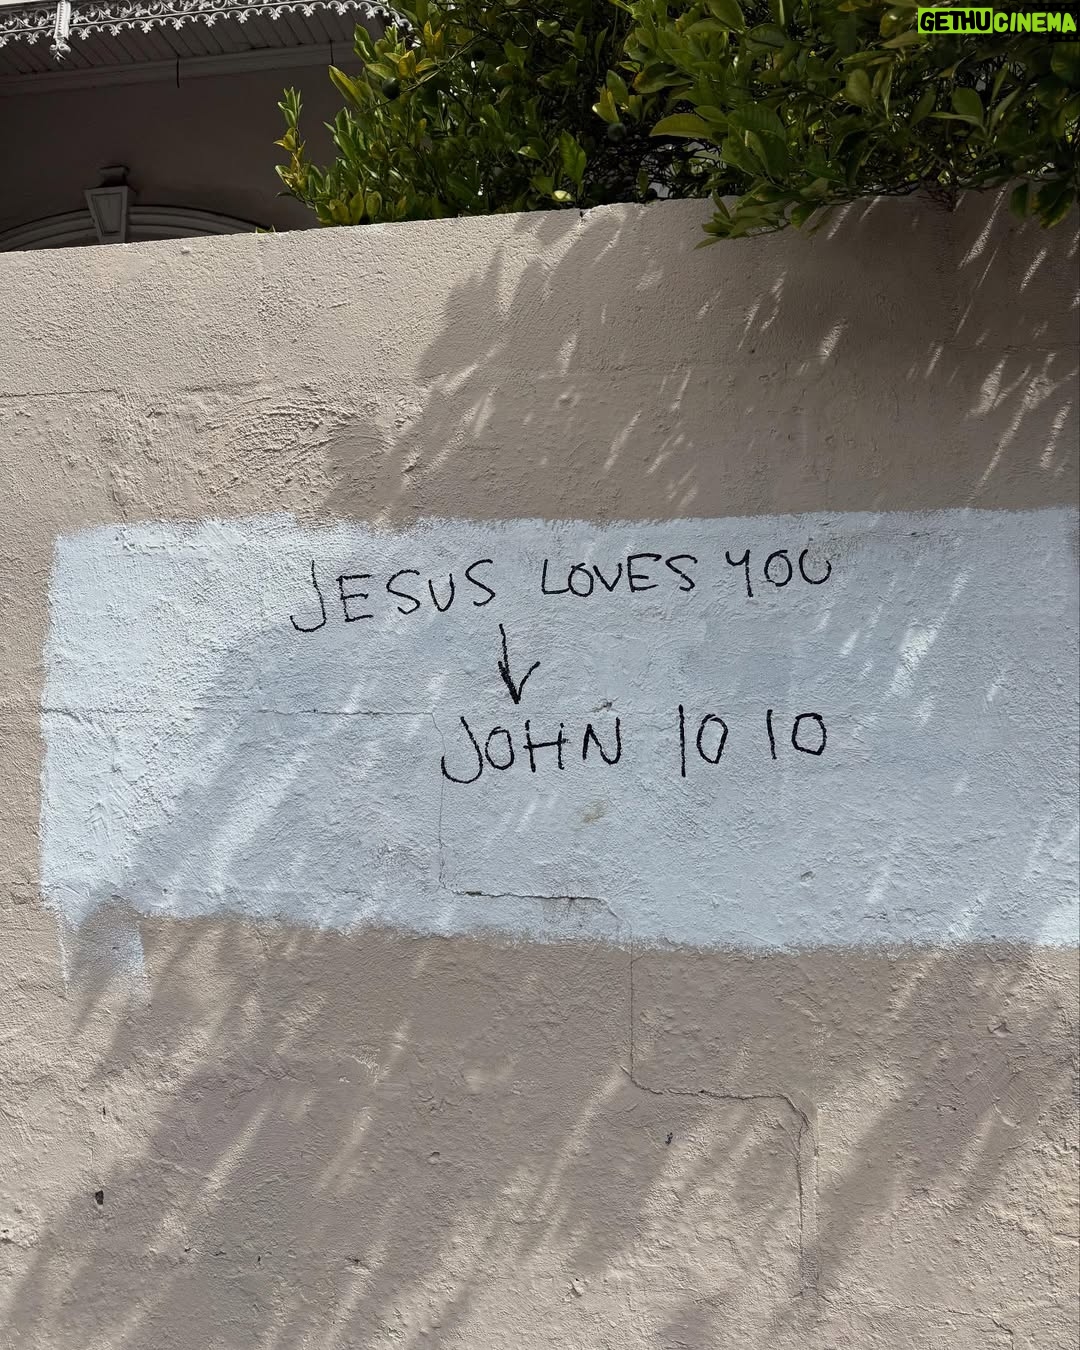 GETHUCINEMA
JESUS LOVES YOU
JOHN 10 10